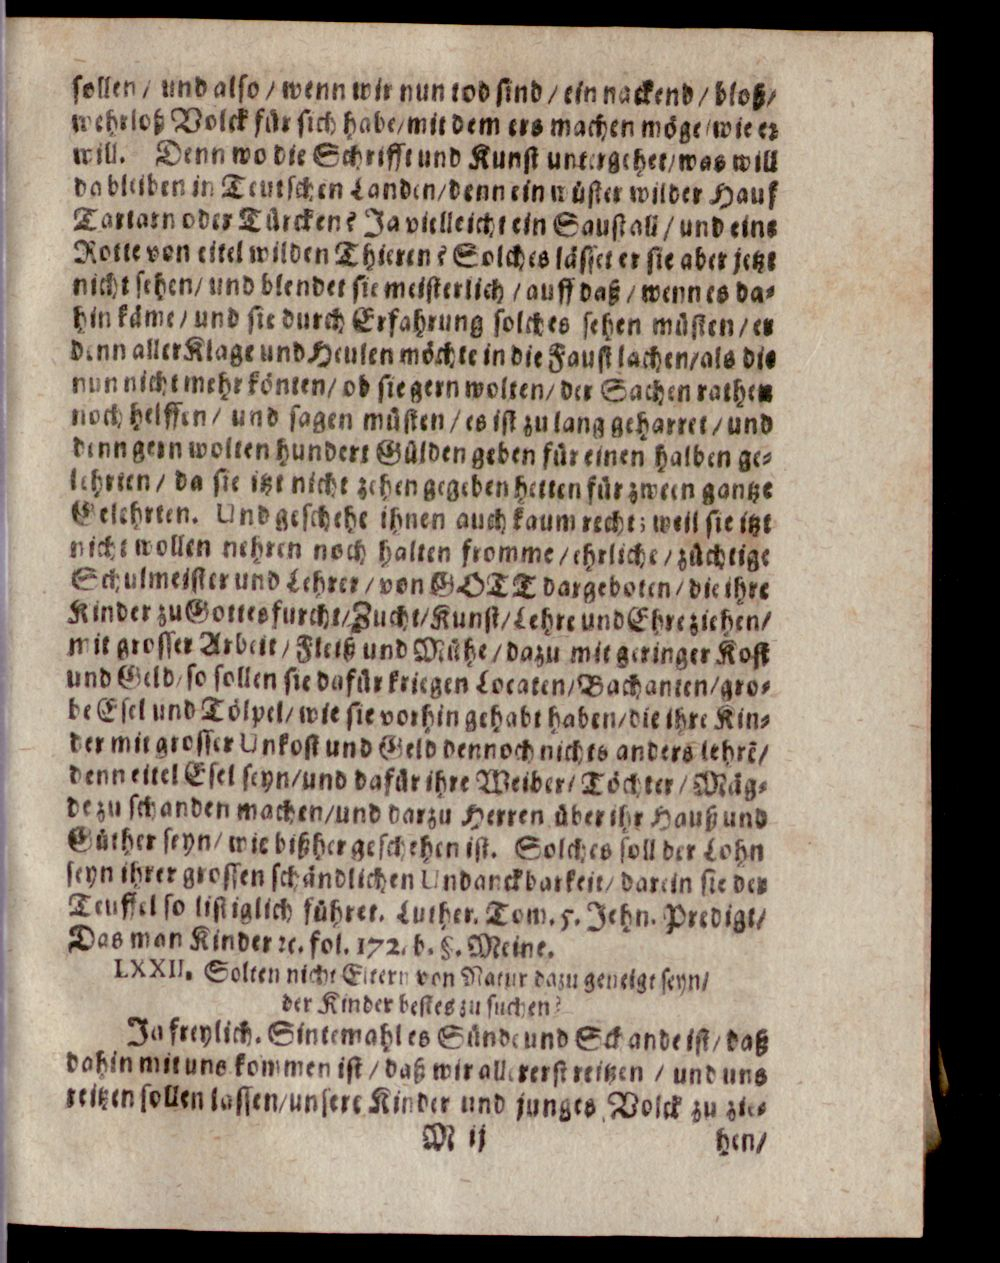 sollen / und also / wenn wir nun tod sind / ein nackend / bloß/
wehrloß Volck für sich habe/ mit dem ers machen möge/ wie er
will. Denn wo die Schrifft und Kunst untergehet/ was will
da bleiben in Teutschen Landen/ denn ein wüster wilder Hauf
Tartarn oder Türcken? Ja vielleicht ein Saustall / und eine
Rotte von eitel wilden Thieren? Solches lässet er sie aber jetzt
nicht sehen/ und blendet sie meisterlich / auff daß / wenn es da-
hin käme / und sie durch Erfahrung solches sehen müsten / er
denn aller Klage und Heulen möchte in die Faust lachen/ als die
nun nicht mehr könten/ ob sie gern wolten/ der Sachen rathen
noch helffen/ und sagen müsten / es ist zu lang geharret / und
denn gern wolten hundert Gülden geben für einen halben ge-
lehrten / da sie itzt nicht zehen gegeben hetten für zween gantze
Gelehrten. Und geschehe ihnen auch kaum recht; weil sie itzt
nicht wollen nehren noch halten fromme / ehrliche / züchtige
Schulmeister und Lehrer / von GOTT dargeboten / die ihre
Kinder zu Gottesfurcht/ Zucht/ Kunst/ Lehre und Ehre ziehen/
mit grosser Arbeit / Fleiß und Mühe / dazu mit geringer Kost
und Geld/ so sollen sie dafür kriegen Locaten/ Bachanten/ gro-
be Esel und Tölpel/ wie sie vorhin gehabt haben/ die ihre Kin-
der mit grosser Unkost und Geld dennoch nichts anders lehrẽ/
denn eitel Esel seyn/ und dafür ihre Weiber/ Töchter / Mäg-
de zu schanden machen/ und darzu Herren über ihr Hauß und
Güther seyn/ wie bißher geschehen ist. Solches soll der Lohn
seyn ihrer grossen schändlichen Undanckbarkeit/ darein sie der
Teuffel so listiglich führet. Luther. Tom. 5. Jehn. Predigt/
Das man Kinder ꝛc. fol. 172. b. §. Meine.
LXXII. Solten nicht Eltern von Natur dazu geneigt seyn/
der Kinder bestes zu suchen?
Ja freylich. Sintemahl es Sünde und Schande ist / daß
dahin mit uns kommen ist / daß wir allererst reitzen / und uns
reitzen sollen lassen/ unsere Kinder und junges Volck zu zie-
M ij hen/